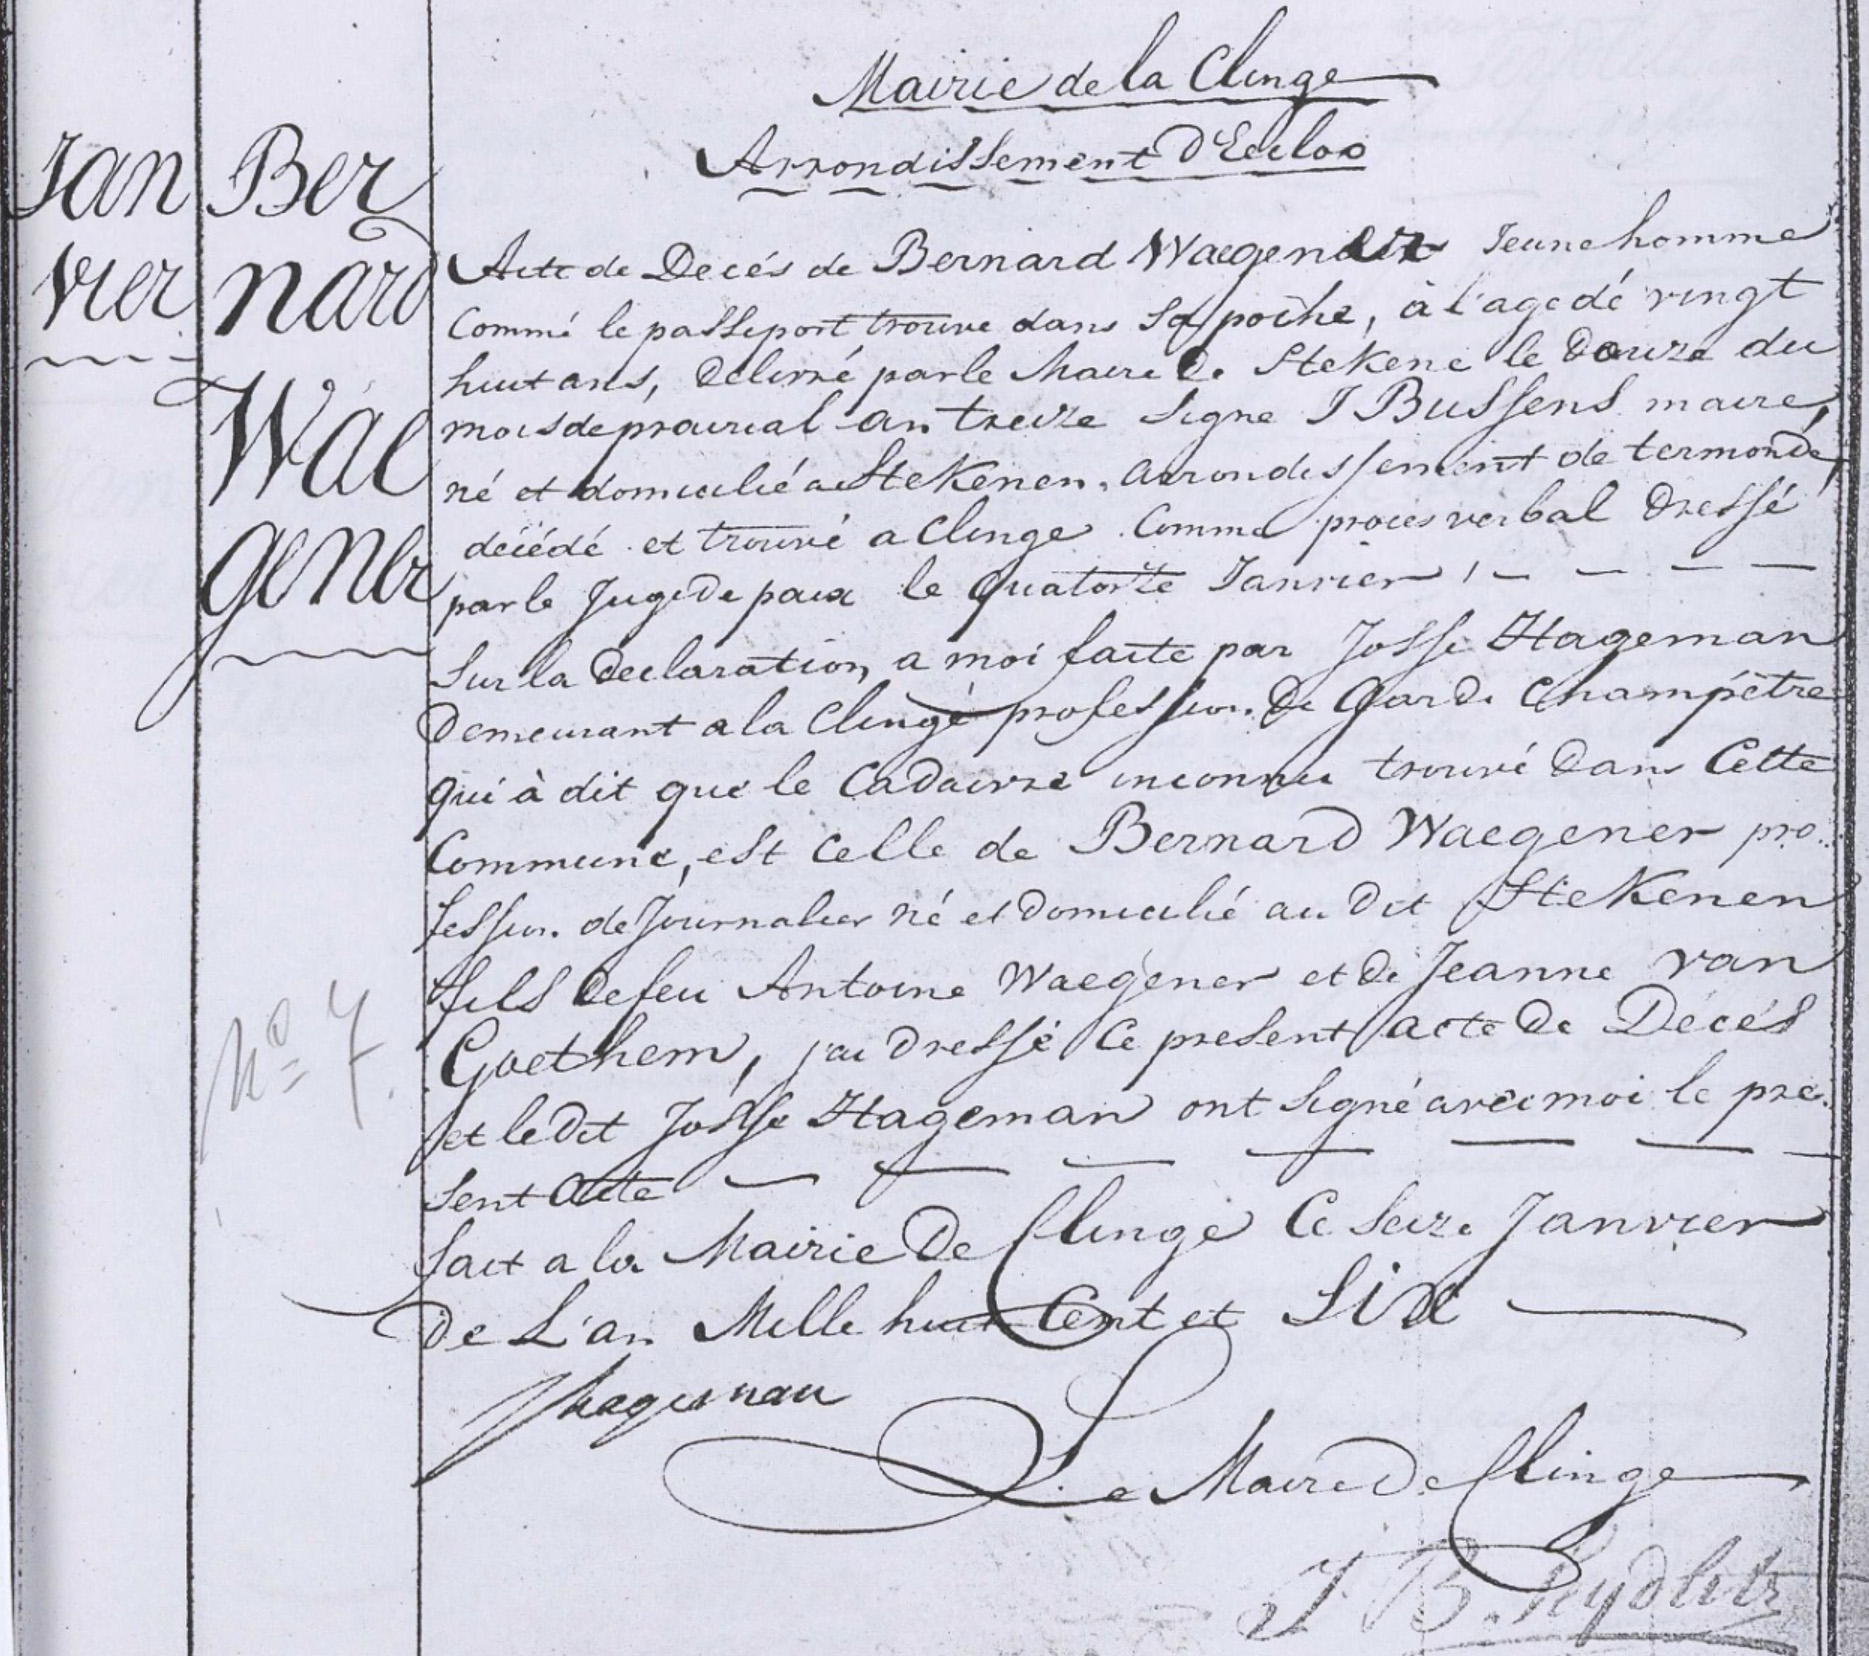 Mairie de la Clinge
Arrondissement d'Eecloo
Jan
vier
Ber
nard
Wae
gener
Acte de Decés de Bernard Waegener Jeune homme
Commé le passeport trouve dans sa poche, à l'age dé vingt
huit ans, delivré par le Maire De Stekene le douze du
mois de prairial an treize Signe J Bussens maire,
né et domicilié au Stekenen, arrondissement de termonde,
décédé et trouvé a Clinge Comme proces verbal dressé
par le Juge de paix le quatorze Janvier, — — — —
Sur la declaration, a moi faite par Josse Hageman
Demeurant a la Clinge profession De Garde Champêtre
qui à dit que le Cadavre inconnu trouvé dans Cette
Commune, est Celle de Bernard Waegener pro..
fession de Journalier né et domicilié au dit Stekenen
fils de feu Antoine Waegener et de Jeanne van
Goethem, j'ai dressé Ce present acte de Décés
et le dit Josse Hageman ont signé avec moi le pre.
sent acte — — — — — — —
Nº 7.
fait a la Mairie De Clinge Ce Seize Janvier
de L'an Mille huit Cent et Six —
Jhageman
Le Maire De Clinge
J B.